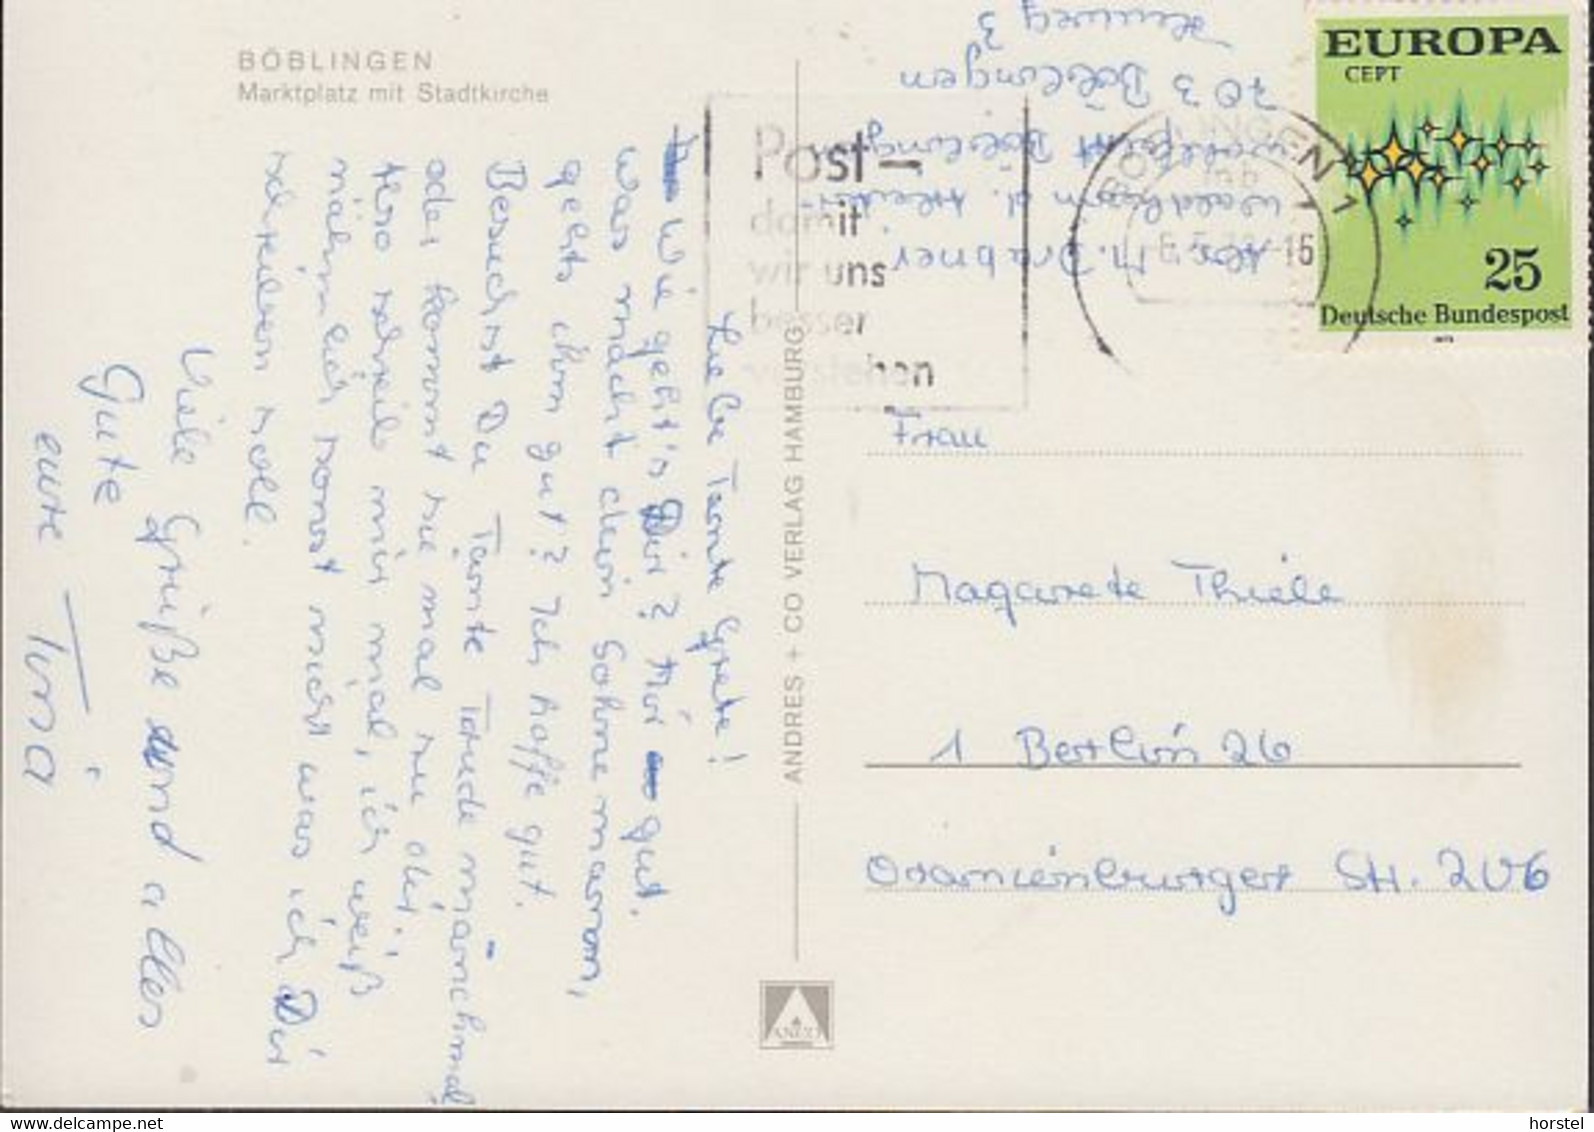 BÖBLINGEN
Marktplatz mit Stadtkirche
Liebe Tante Grete!
Wie geht's Dir? Mir gut.
Was macht dein Sohnemann,
gehts ihm gut? Ich hoffe gut.
Besuchst Du Tante Trude mānchmal
oder kommt sie mal zu dir?
Also schreib mir mal, ich weiß
nähmlich sonst nicht was ich Dir
schreiben soll.
Viele Grüße und alles
Gute
eure Tina
ANDRES + CO VERLAG HAMBURG
ANCO
Abs. M. Drabner
Waldheim d.
Wohlfahrt Böblingen
703 Böblingen
3
Post-
damit
wir uns
besser
verstehen
BÖBLINGEN 1
mb
-15
EUROPA
CEPT
25
Deutsche Bundespost
Frau
Magarete Thiele
1 Berlin 26
Oranienburger Str. 206
© delcampe.net
horstel